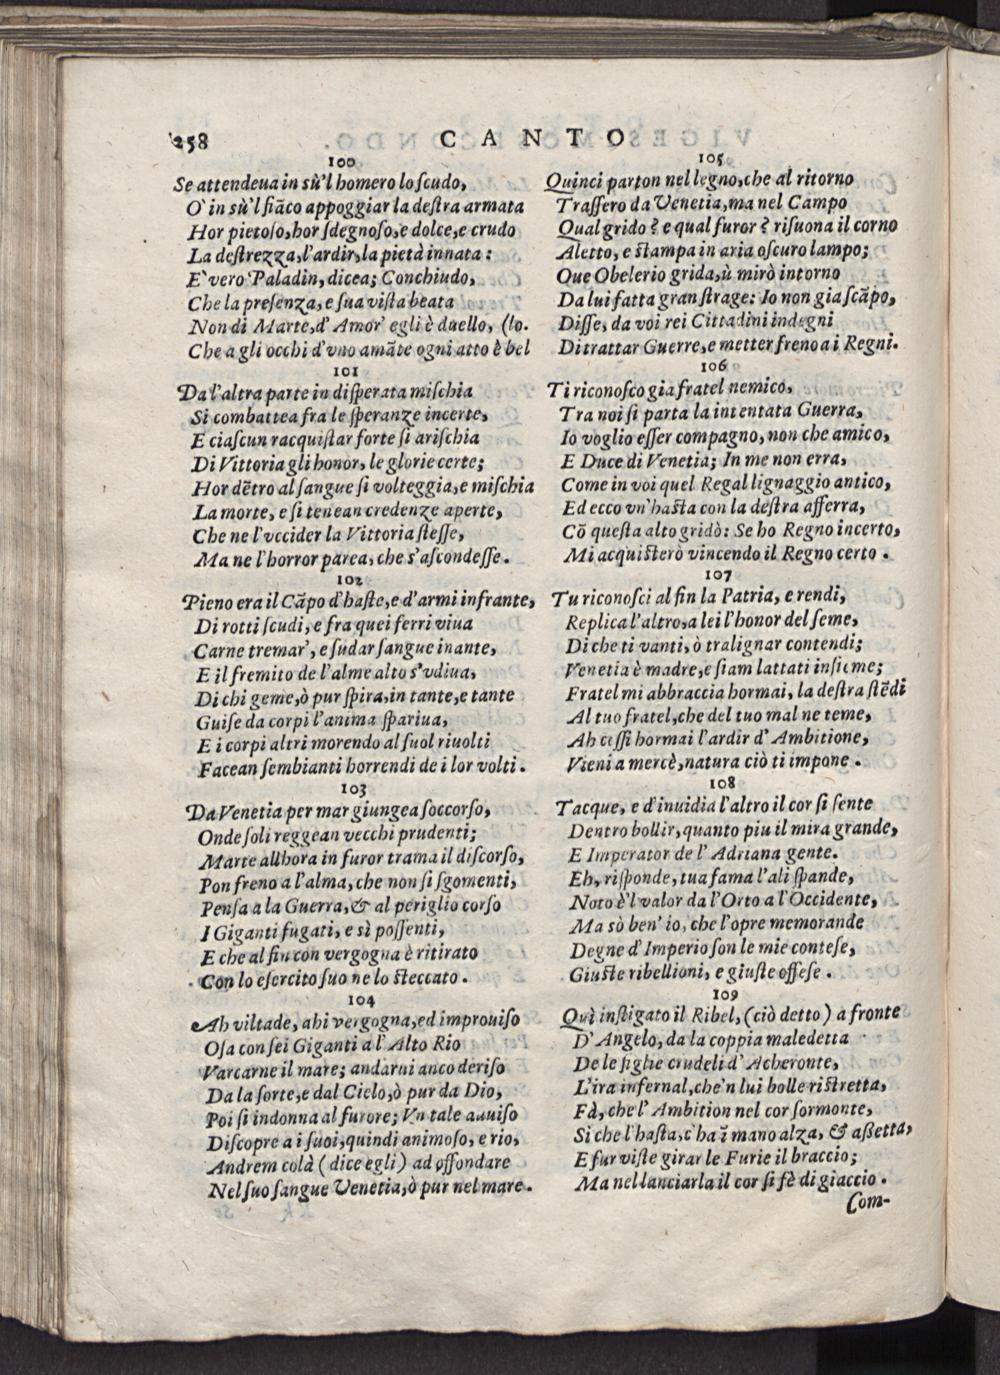 258
CANTO
100
Se attendeua in sù'l homero lo ſcudo,
O' in sù'l fiãco appoggiar la deſtra armata
Hor pietoſo, hor ſdegnoſo, e dolce, e crudo
La deſtrezza, l'ardir, la pietà innata:
E' vero Paladin, dicea; Conchiudo,
Che la preſenza, e ſua viſta beata
Non di Marte, d'Amor egli è duello, (lo.
Che a gli occhi d'vno amãte ogni atto è bel
101
Da l'altra parte in diſperata miſchia
Si combattea fra le ſperanze incerte,
E ciaſcun racquiſtar forte ſi ariſchia
Di Vittoria gli honor, le glorie certe;
Hor dẽtro al ſangue ſi volteggia, e miſchia
La morte, e ſi tenean credenze aperte,
Che ne l'vccider la Vittoria ſteſſe,
Ma ne l'horror parea, che s'aſcondeſſe.
102
Pieno era il Cãpo d'haſte, e d'armi infrante,
Di rotti ſcudi, e fra quei ferri viua
Carne tremar, e ſudar ſangue inante,
E il fremito de l'alme alto s'vdiua,
Di chi geme, ò pur ſpira, in tante, e tante
Guiſe da corpi l'anima ſpariua,
E i corpi altri morendo al ſuol riuolti
Facean ſembianti horrendi de i lor volti.
103
Da Venetia per mar giungea ſoccorſo,
Onde ſoli reggean vecchi prudenti;
Marte allhora in furor trama il diſcorſo,
Pon freno a l'alma, che non ſi ſgomenti,
Penſa a la Guerra, & al periglio corſo
I Giganti fugati, e sì poſſenti,
E che al fin con vergogna è ritirato
Con lo eſercito ſuo ne lo ſteccato.
104
Ah viltade, ahi vergogna, ed improuiſo
Oſa con ſei Giganti a l'Alto Rio
Varcarne il mare; andarui anco deriſo
Da la ſorte, e dal Cielo, ò pur da Dio,
Poi ſi indonna al furore; Vn tale auuiſo
Diſcopre a i ſuoi, quindi animoſo, e rio,
Andrem colà (dice egli) ad affondare
Nel ſuo ſangue Venetia, ò pur nel mare.
105
Quinci parton nel legno, che al ritorno
Traſſero da Venetia, ma nel Campo
Qual grido? e qual furor? riſuona il corno
Aletto, e ſtampa in aria oſcuro lampo;
Que Obelerio grida, ù mirò intorno
Da lui fatta gran ſtrage: Io non gia ſcãpo,
Diſſe, da voi rei Cittadini indegni
Di trattar Guerre, e metter freno a i Regni.
106
Ti riconoſco gia fratel nemico,
Tra noi ſi parta la intentata Guerra,
Io voglio eſſer compagno, non che amico,
E Duce di Venetia; In me non erra,
Come in voi quel Regal lignaggio antico,
Ed ecco vn'haſta con la deſtra afferra,
Cõ queſta alto gridò: Se ho Regno incerto,
Mi acquiſterò vincendo il Regno certo.
107
Tu riconoſci al fin la Patria, e rendi,
Replica l'altro, a lei l'honor del ſeme,
Di che ti vanti, ò tralignar contendi;
Venetia è madre, e ſiam lattati inſieme;
Fratel mi abbraccia hormai, la deſtra ſtẽdi
Al tuo fratel, che del tuo mal ne teme,
Ah ceſſi hormai l'ardir d'Ambitione,
Vieni a mercè, natura ciò ti impone.
108
Tacque, e d'inuidia l'altro il cor ſi ſente
Dentro bollir, quanto piu il mira grande,
E Imperator de l'Adriana gente.
Eh, riſponde, tua fama l'ali ſpande,
Noto è'l valor da l'Orto a l'Occidente,
Ma sò ben' io, che l'opre memorande
Degne d'Imperio ſon le mie conteſe,
Giuſte ribellioni, e giuſte offeſe.
109
Quì inſtigato il Ribel, (ciò detto) a fronte
D'Angelo, da la coppia maledetta
De le figlie crudeli d'Acheronte,
L'ira infernal, che'n lui bolle riſtretta,
Fà, che l'Ambition nel cor ſormonte,
Si che l'haſta, c'ha ĩ mano alza, & aßetta,
E fur viſte girar le Furie il braccio;
Ma nel lanciarla il cor ſi fè di giaccio.
Com-